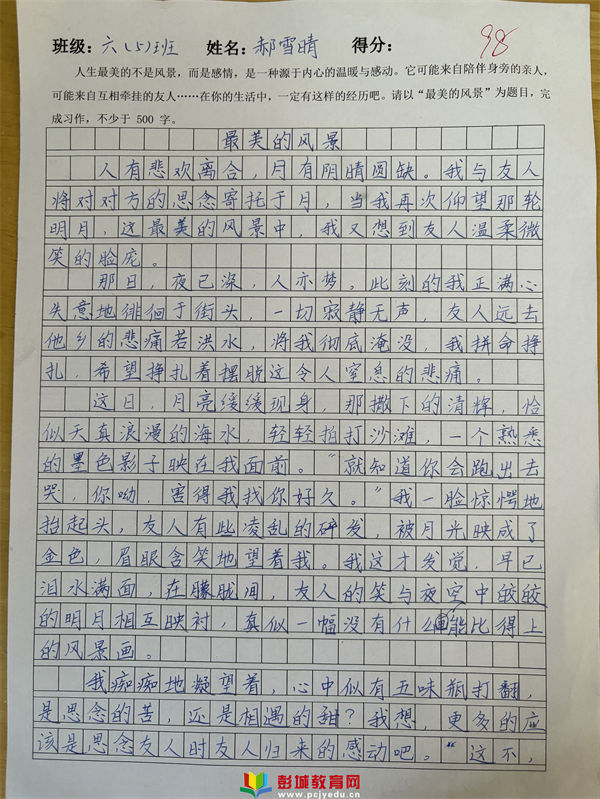 班级：六（5）班 姓名：郝雪晴 得分： 98
人生最美的不是风景，而是感情，是一种源于内心的温暖与感动。它可能来自陪伴身旁的亲人，
可能来自互相牵挂的友人……在你的生活中，一定有这样的经历吧。请以“最美的风景”为题目，完
成习作，不少于 500 字。
最美的风景
人有悲欢离合，月有阴晴圆缺。我与友人
将对对方的思念寄托于月，当我再次仰望那轮
明月，这最美的风景中，我又想到友人温柔微
笑的脸庞。
那日，夜已深，人亦梦。此刻的我正满心
失意地徘徊于街头，一切寂静无声，友人远去
他乡的悲痛若洪水，将我彻底淹没，我拼命挣
扎，希望挣扎着摆脱这令人窒息的悲痛。
这日，月亮缓缓现身，那撒下的清辉，恰
似天真浪漫的海水，轻轻拍打沙滩，一个熟悉
的墨色影子映在我面前。“就知道你会跑出去
哭，你呦，害得我找你好久。”我一脸惊愕地
抬起头，友人有些凌乱的碎发，被月光映成了
金色，眉眼含笑地望着我。我这才发觉，早已
泪水满面，在朦胧间，友人的笑与夜空中皎皎
的明月相互映衬，真似一幅没有什么能比得上
的风景画。
我痴痴地凝望着，心中似有五味瓶打翻，
是思念的苦，还是相遇的甜？我想，更多的应
该是思念友人时友人归来的感动吧。“这不，
彭城教育网
www.pcjyedu.cn